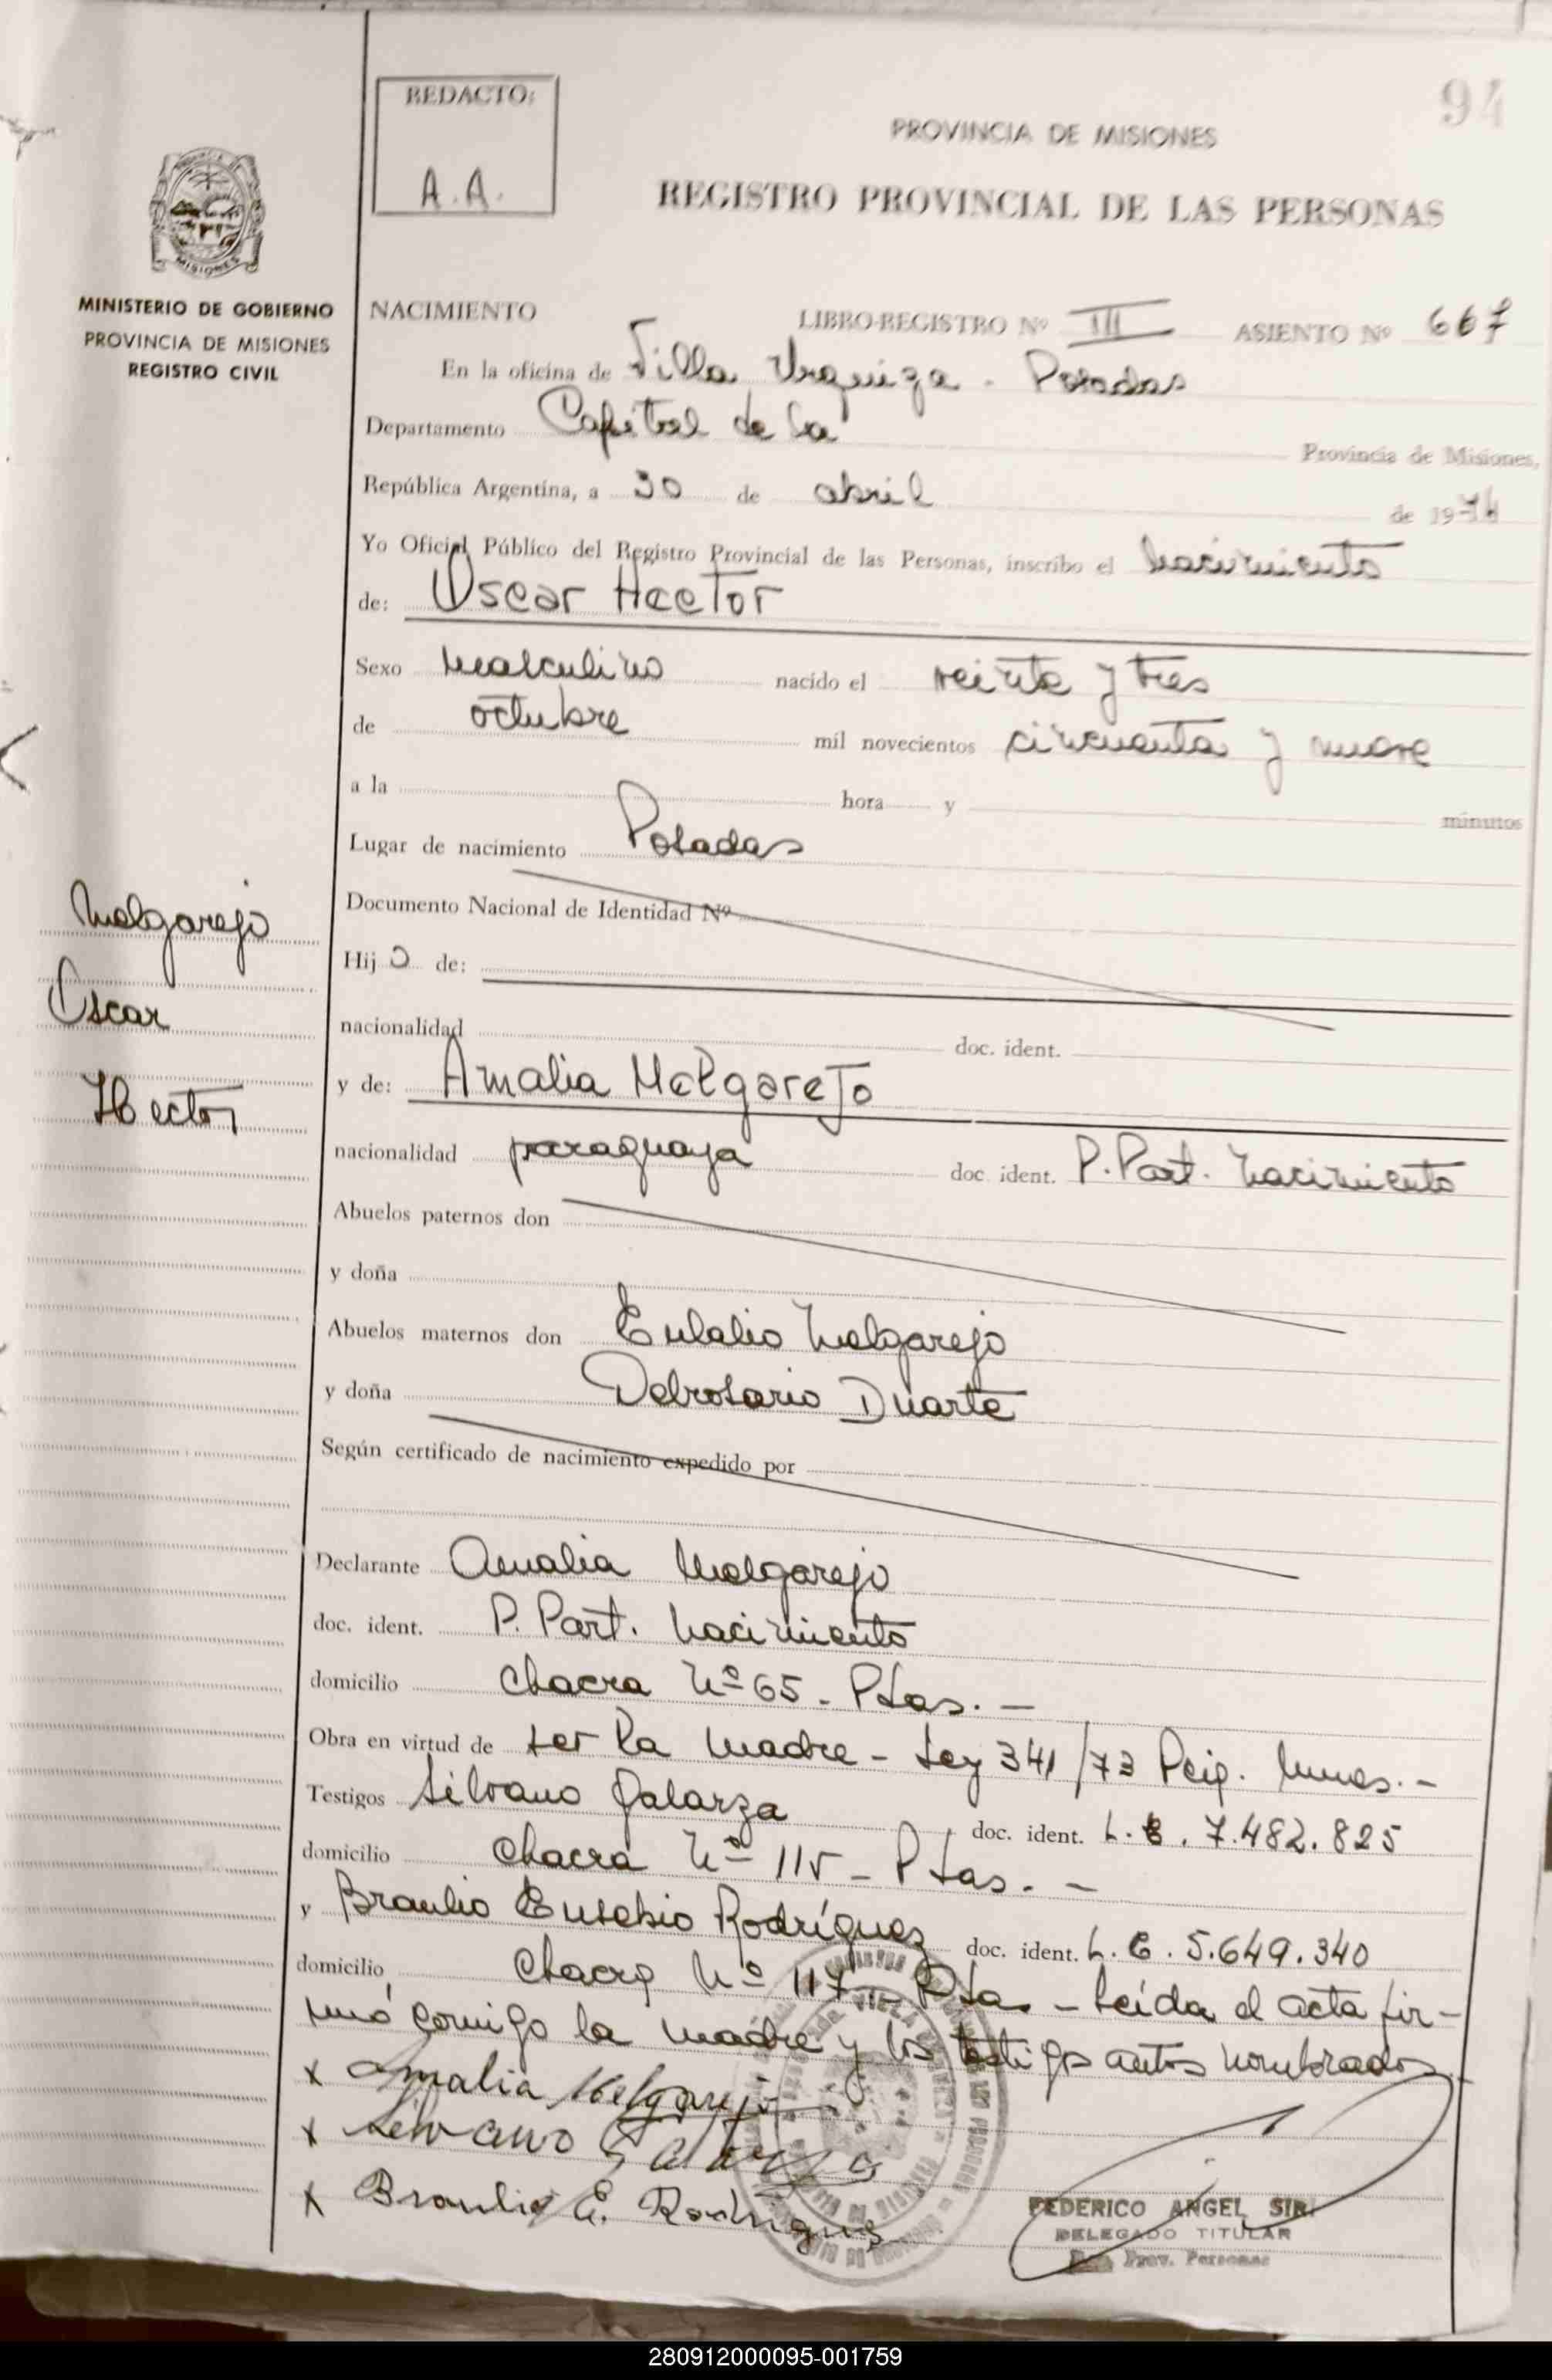 94
REDACTO:
A.A.
PROVINCIA DE MISIONES
REGISTRO PROVINCIAL DE LAS PERSONAS
MISIONES
MINISTERIO DE GOBIERNO
PROVINCIA DE MISIONES
REGISTRO CIVIL
NACIMIENTO LIBRO-REGISTRO Nº III ASIENTO Nº 667
En la oficina de Villa Urquiza - Posadas
Departamento Capital de la Provincia de Misiones,
República Argentina, a 30 de abril de 19
Yo Oficial Público del Registro Provincial de las Personas, inscribo el nacimiento
de: Oscar Hector
Sexo masculino nacido el veinte y tres
de octubre mil novecientos cincuenta y nueve
a la hora y minutos
Lugar de nacimiento Posadas
Documento Nacional de Identidad Nº
Hijo de:
nacionalidad doc. ident.
y de: Amalia Melgarejo
nacionalidad paraguaya doc. ident. P. Part. nacimiento
Abuelos paternos don
y doña
Abuelos maternos don Eulalio Melgarejo
y doña Delrosario Duarte
Según certificado de nacimiento expedido por
Declarante Amalia Melgarejo
doc. ident. P. Part. nacimiento
domicilio chacra Nº 65 - Pdas. -
Obra en virtud de ser la madre - Ley 341/73
Testigos Silvano Galarza doc. ident. L.E. 7.482.825
domicilio chacra Nº 115 - Pdas. -
y Braulio Eusebio Rodríguez doc. ident. L.E. 5.649.340
domicilio chacra Nº 117 - Pdas - Leída el acta fir-
mó comigo la madre y los testigos antes nombrados
x Amalia Melgarejo
x Silvano Galarza
x Braulio E. Rodriguez
FEDERICO ANGEL SIR
DELEGADO TITULAR
Prov. Personas
Melgarejo
Oscar
Hector
280912000095-001759